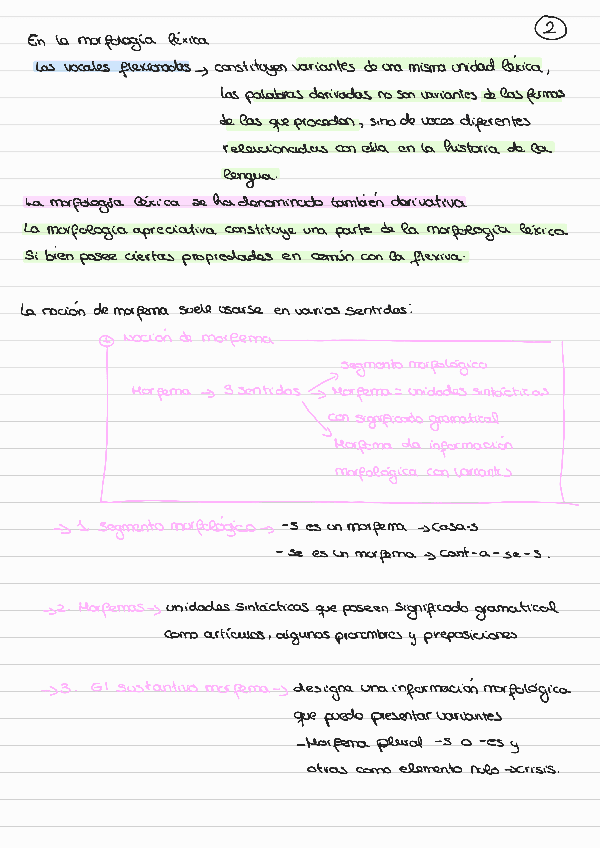 2
En la morfología léxica
Las vocales flexionadas → constituyen variantes de una misma unidad léxica,
las palabras derivadas no son variantes de las formas
de las que procedan, sino de voces diferentes
relacionadas con ella en la historia de la
lengua.
La morfología léxica se ha denominado también derivativa
La morfología apreciativa constituye una parte de la morfología léxica.
Si bien posee ciertas propiedades en común con la flexiva.
La noción de morfema suele usarse en varios sentidos:
noción de morfema
Segmento morfológico
Morfema → 3 sentidos → Morfema = unidades sintácticas
con significado gramatical
Morfema da información
morfológica con variantes
→ 1. Segmento morfológico → -s es un morfema → casa-s
- se es un morfema → cant-a-se-s.
→ 2. Morfemas → unidades sintácticas que poseen significado gramatical
como artículos, algunos pronombres y preposiciones
→ 3. El sustantivo morfema → designa una información morfológica
que puedo presentar variantes
- Morfema plural -s o -es y
otras como elemento nulo → crisis.